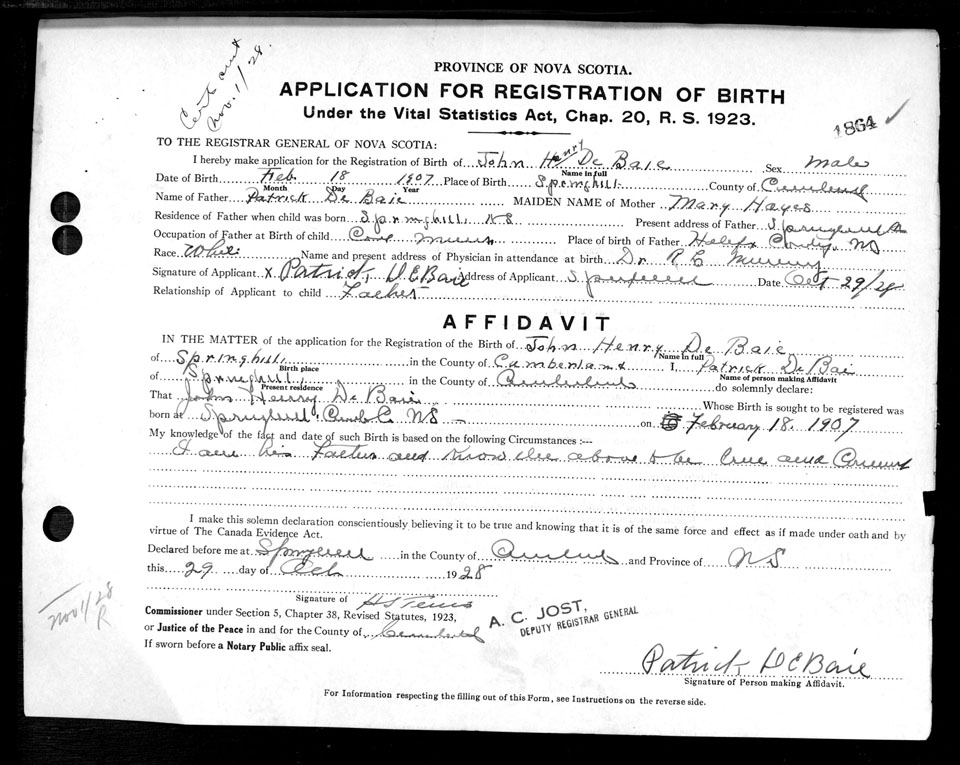 Cert sent
Nov. 1/28.
PROVINCE OF NOVA SCOTIA.
APPLICATION FOR REGISTRATION OF BIRTH
Under the Vital Statistics Act, Chap. 20, R. S. 1923.
1864
TO THE REGISTRAR GENERAL OF NOVA SCOTIA:
I hereby make application for the Registration of Birth of John Henry De Baie Sex male
Name in full
Date of Birth Feb 18 1907 Place of Birth Springhill County of Cumberland
Month Day Year
Name of Father Patrick De Baie MAIDEN NAME of Mother Mary Hayes
Residence of Father when child was born Springhill, NS Present address of Father Springhill
Occupation of Father at Birth of child Coal Miner Place of birth of Father Halifx County, NS
Race White Name and present address of Physician in attendance at birth Dr R E Murray
Signature of Applicant x Patrick, DEBaie Address of Applicant Springhill Date Oct 29/28
Relationship of Applicant to child Father
AFFIDAVIT
IN THE MATTER of the application for the Registration of the Birth of John Henry De Baie
Name in full
of Springhill, in the County of Cumberland I, Patrick De Bai
Birth place Name of person making Affidavit
of Springhill, in the County of Cumberland do solemnly declare:
Present residence
That John Henry De Baie Whose Birth is sought to be registered was
born at Springhill, Cumb C. NS on February 18. 1907
My knowledge of the fact and date of such Birth is based on the following Circumstances :---
I am his Father and know the above to be true and Correct
I make this solemn declaration conscientiously believing it to be true and knowing that it is of the same force and effect as if made under oath and by
virtue of The Canada Evidence Act.
Declared before me at Springhill in the County of Cumberland and Province of NS
this 29 day of Oct 1928
Signature of
Commissioner under Section 5, Chapter 38, Revised Statutes, 1923,
or Justice of the Peace in and for the County of Cumberland
If sworn before a Notary Public affix seal.
A. C. JOST,
DEPUTY REGISTRAR GENERAL
Nov 1/28
R
Patrick DEBaie
Signature of Person making Affidavit.
For Information respecting the filling out of this Form, see Instructions on the reverse side.